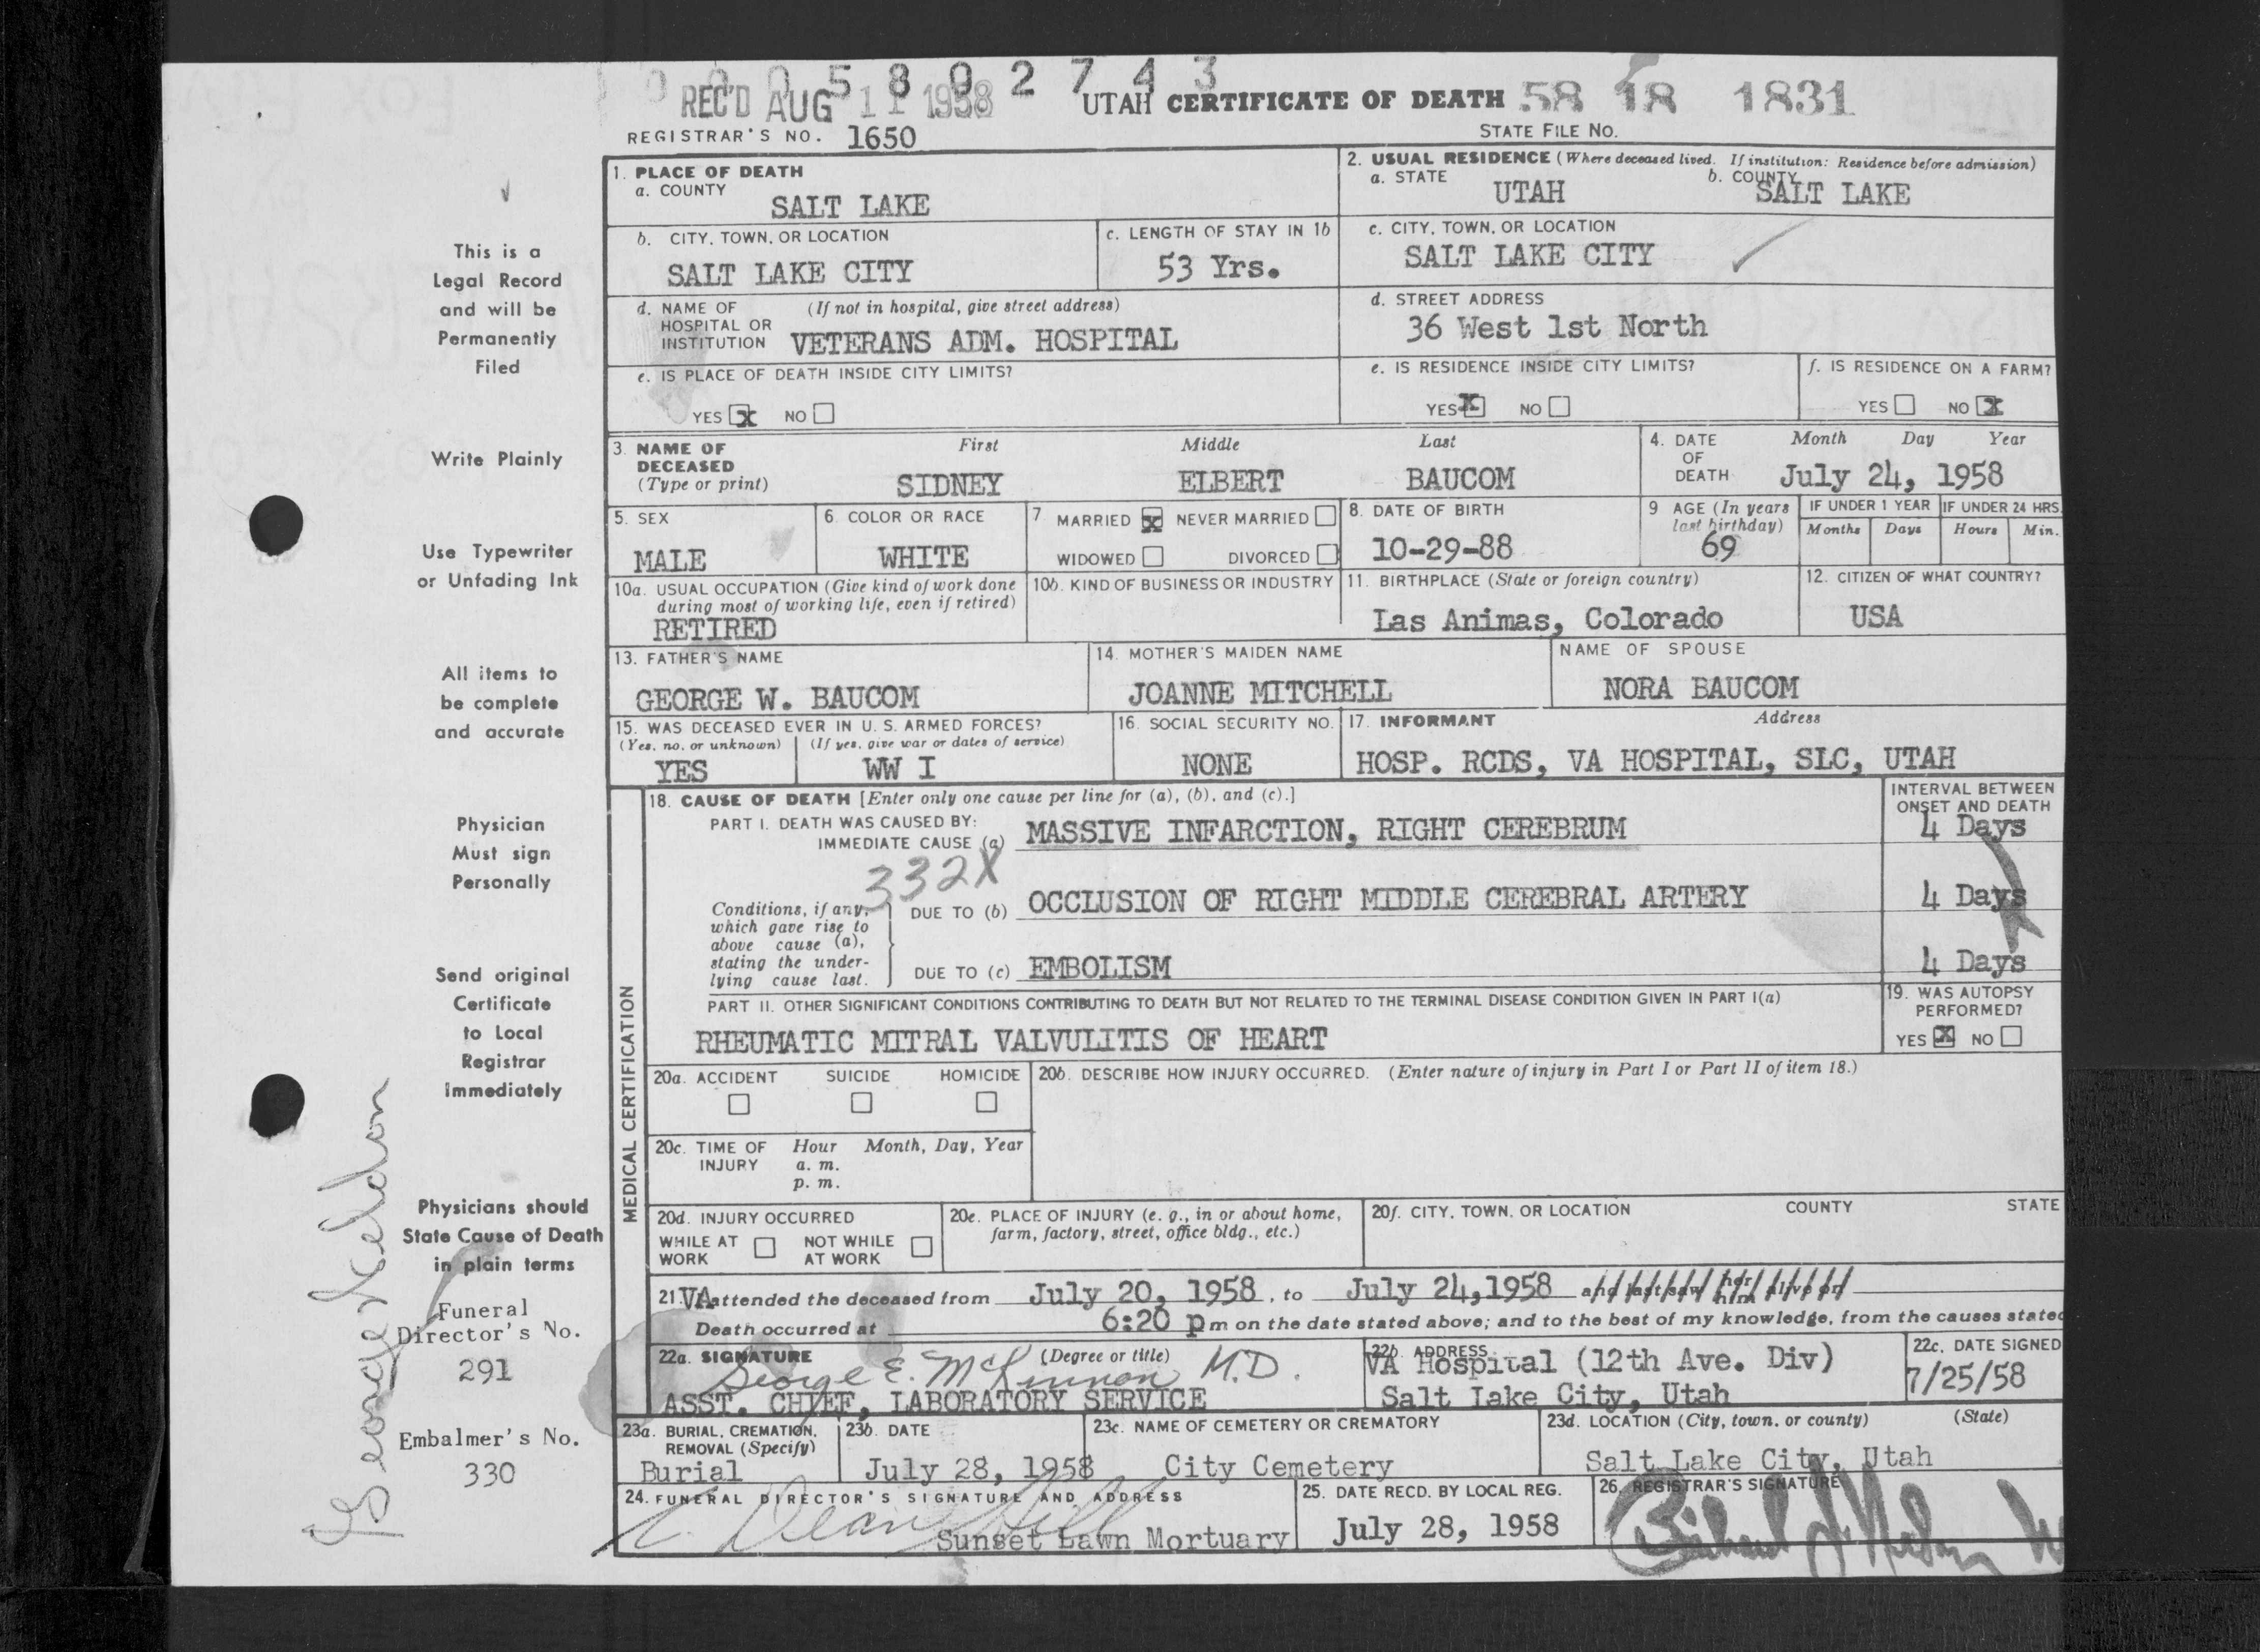 0 0 0 5 8 0 2 7 4 3
REC'D AUG 11 1958 UTAH CERTIFICATE OF DEATH 58 18 1831
REGISTRAR'S NO. 1650 STATE FILE NO.
1. PLACE OF DEATH
a. COUNTY
SALT LAKE
2. USUAL RESIDENCE (Where deceased lived. If institution: Residence before admission)
a. STATE b. COUNTY
UTAH SALT LAKE
b. CITY, TOWN, OR LOCATION
SALT LAKE CITY
c. LENGTH OF STAY IN 1b
53 Yrs.
c. CITY, TOWN, OR LOCATION
SALT LAKE CITY
d. NAME OF (If not in hospital, give street address)
HOSPITAL OR
INSTITUTION VETERANS ADM. HOSPITAL
d. STREET ADDRESS
36 West 1st North
e. IS PLACE OF DEATH INSIDE CITY LIMITS?
YES X NO
e. IS RESIDENCE INSIDE CITY LIMITS?
YES X NO
f. IS RESIDENCE ON A FARM?
YES NO X
3. NAME OF DECEASED (Type or print)
First Middle Last
SIDNEY ELBERT BAUCOM
4. DATE OF DEATH
Month Day Year
July 24, 1958
5. SEX
MALE
6. COLOR OR RACE
WHITE
7 MARRIED X NEVER MARRIED
WIDOWED DIVORCED
8. DATE OF BIRTH
10-29-88
9 AGE (In years
last birthday)
69
IF UNDER 1 YEAR
Months Days
IF UNDER 24 HRS.
Hours Min.
10a. USUAL OCCUPATION (Give kind of work done
during most of working life, even if retired)
RETIRED
10b. KIND OF BUSINESS OR INDUSTRY
11. BIRTHPLACE (State or foreign country)
Las Animas, Colorado
12. CITIZEN OF WHAT COUNTRY?
USA
13. FATHER'S NAME
GEORGE W. BAUCOM
14. MOTHER'S MAIDEN NAME
JOANNE MITCHELL
NAME OF SPOUSE
NORA BAUCOM
15. WAS DECEASED EVER IN U. S. ARMED FORCES?
(Yes, no, or unknown) (If yes, give war or dates of service)
YES WW I
16. SOCIAL SECURITY NO.
NONE
17. INFORMANT Address
HOSP. RCDS, VA HOSPITAL, SLC, UTAH
MEDICAL CERTIFICATION
18. CAUSE OF DEATH [Enter only one cause per line for (a), (b), and (c).]
INTERVAL BETWEEN
ONSET AND DEATH
PART I. DEATH WAS CAUSED BY:
IMMEDIATE CAUSE (a) MASSIVE INFARCTION, RIGHT CEREBRUM 4 Days
332X
Conditions, if any,
which gave rise to
above cause (a),
stating the under-
lying cause last.
DUE TO (b) OCCLUSION OF RIGHT MIDDLE CEREBRAL ARTERY 4 Days
DUE TO (c) EMBOLISM 4 Days
PART II. OTHER SIGNIFICANT CONDITIONS CONTRIBUTING TO DEATH BUT NOT RELATED TO THE TERMINAL DISEASE CONDITION GIVEN IN PART I(a)
RHEUMATIC MITRAL VALVULITIS OF HEART
19. WAS AUTOPSY
PERFORMED?
YES X NO
20a. ACCIDENT SUICIDE HOMICIDE
20b. DESCRIBE HOW INJURY OCCURRED. (Enter nature of injury in Part I or Part II of item 18.)
20c. TIME OF INJURY Hour Month, Day, Year
a. m.
p. m.
20d. INJURY OCCURRED
WHILE AT WORK NOT WHILE AT WORK
20e. PLACE OF INJURY (e. g., in or about home,
farm, factory, street, office bldg., etc.)
20f. CITY, TOWN, OR LOCATION COUNTY STATE
21 VA attended the deceased from July 20, 1958, to July 24,1958 and last saw her him alive on
Death occurred at 6:20 pm on the date stated above; and to the best of my knowledge, from the causes stated
22a. SIGNATURE (Degree or title)
George E. McKinnon M.D.
ASST. CHIEF, LABORATORY SERVICE
22b. ADDRESS
VA Hospital (12th Ave. Div)
Salt Lake City, Utah
22c. DATE SIGNED
7/25/58
23a. BURIAL, CREMATION,
REMOVAL (Specify)
Burial
23b. DATE
July 28, 1958
23c. NAME OF CEMETERY OR CREMATORY
City Cemetery
23d. LOCATION (City, town, or county) (State)
Salt Lake City, Utah
24. FUNERAL DIRECTOR'S SIGNATURE AND ADDRESS
Deane Hill
Sunset Lawn Mortuary
25. DATE RECD. BY LOCAL REG.
July 28, 1958
26. REGISTRAR'S SIGNATURE
This is a
Legal Record
and will be
Permanently
Filed
Write Plainly
Use Typewriter
or Unfading Ink
All items to
be complete
and accurate
Physician
Must sign
Personally
Send original
Certificate
to Local
Registrar
immediately
Physicians should
State Cause of Death
in plain terms
Funeral
Director's No.
291
Embalmer's No.
330